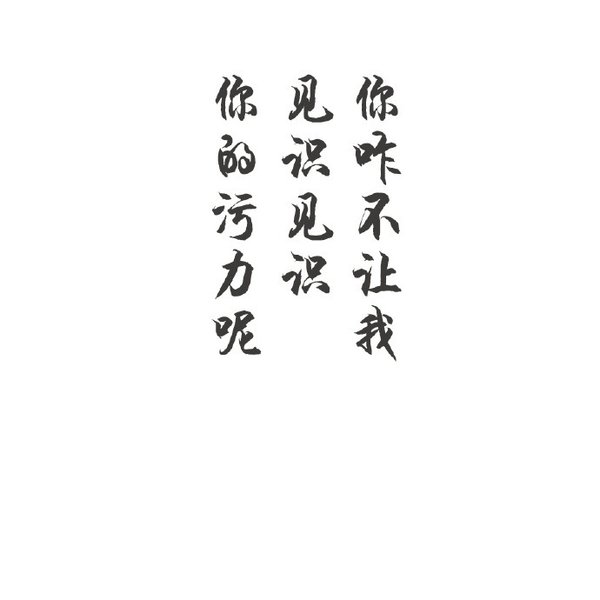 你咋不让我
见识见识
你的污力呢